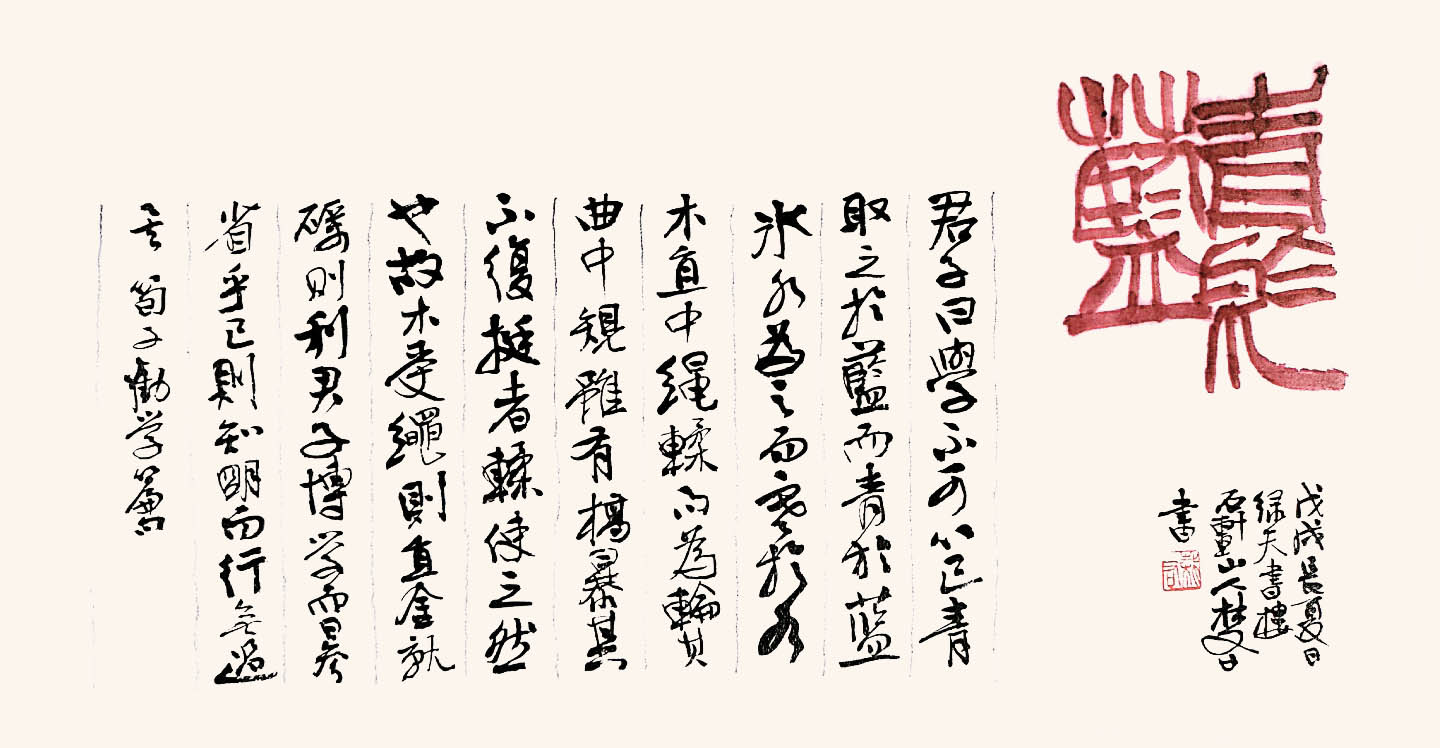 青於藍
君子曰學不可以已青
取之於藍而青於藍
冰水為之而寒於水
木直中绳輮而為輪其
曲中規雖有槁暴其
不復挺者輮使之然
也故木受繩則直金就
礪则利君子博学而日参
省乎己則知明而行無過
矣 荀子勸学篇
戊戌長夏日
绿天書樓
山人梦日
書